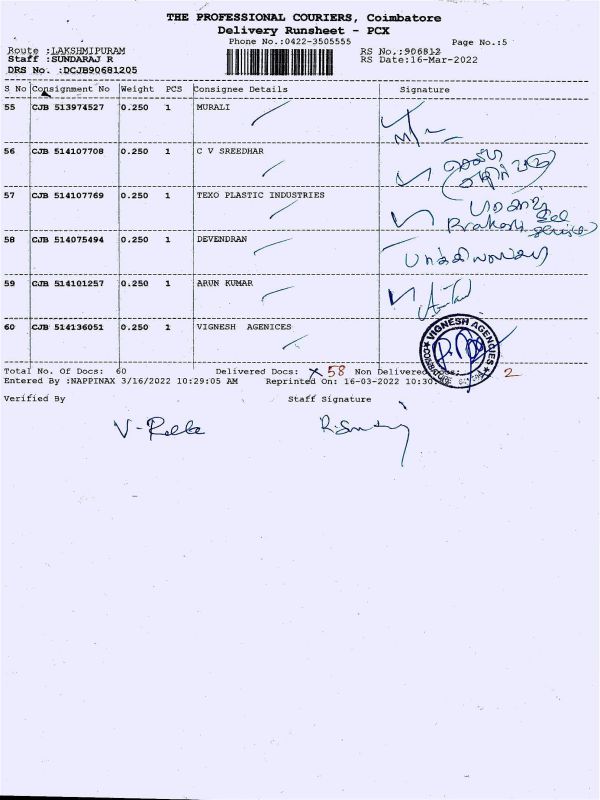 THE PROFESSIONAL COURIERS, Coimbatore
Delivery Runsheet - PCX
Phone No.:0422-3505555
Page No.:5
Route :LAKSHMIPURAM
RS No.:906812
Staff :SUNDARAJ R
RS Date:16-Mar-2022
DRS No. :DCJB90681205
S No Consignment No Weight PCS Consignee Details Signature
55 CJB 513974527 0.250 1 MURALI
56 CJB 514107708 0.250 1 C V SREEDHAR
57 CJB 514107769 0.250 1 TEXO PLASTIC INDUSTRIES
Prakash
58 CJB 514075494 0.250 1 DEVENDRAN
59 CJB 514101257 0.250 1 ARUN KUMAR
60 CJB 514136051 0.250 1 VIGNESH AGENICES
VIGNESH AGENCIES
Total No. Of Docs: 60 Delivered Docs: 58 Non Delivered 2
Entered By :NAPPINAX 3/16/2022 10:29:05 AM Reprinted On: 16-03-2022 10:30
Verified By Staff Signature